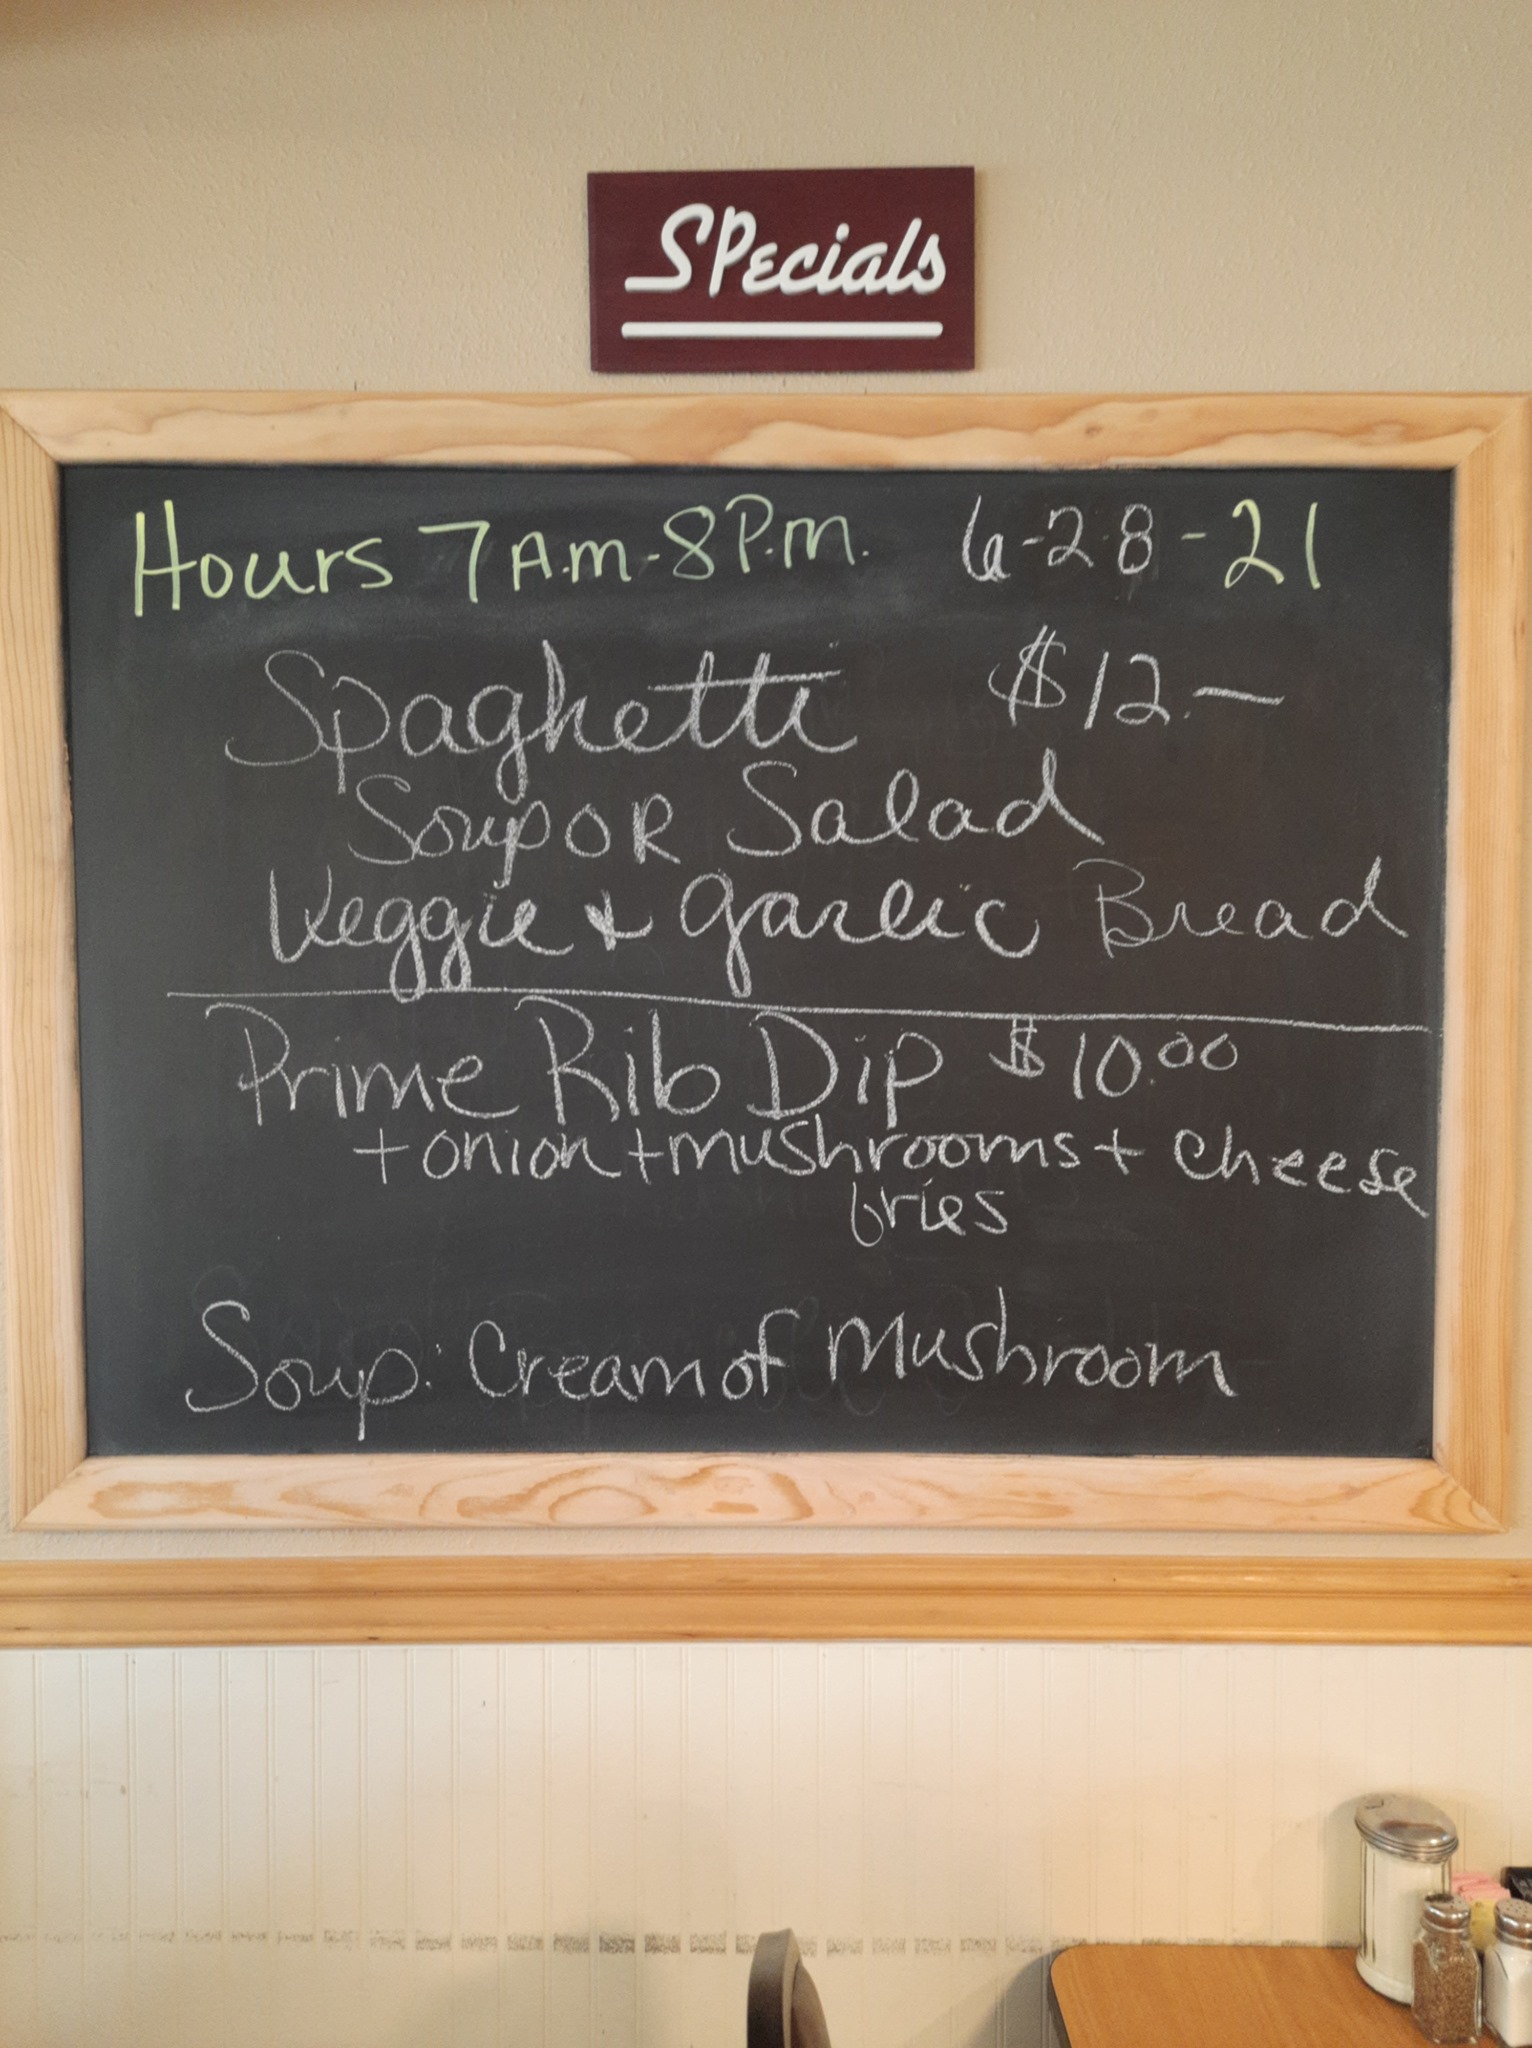 SPecials
Hours 7 A.m-8 P.m. 6-28-21
Spaghetti $12.—
Soup OR Salad
Veggie + garlic Bread
Prime Rib Dip $10.00
+ onion + mushrooms + cheese
fries
Soup: Cream of Mushroom